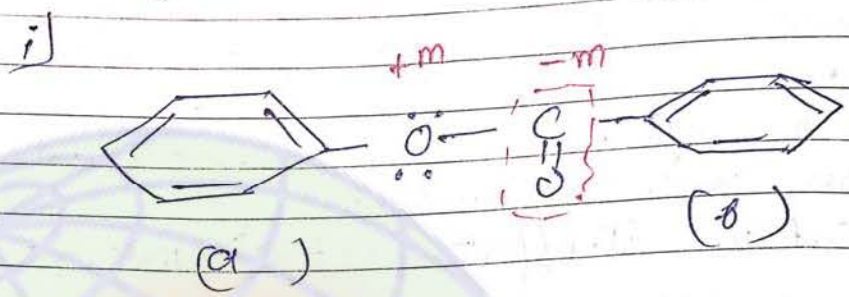 i]
+m -m
Ö C
O
(a) (b)